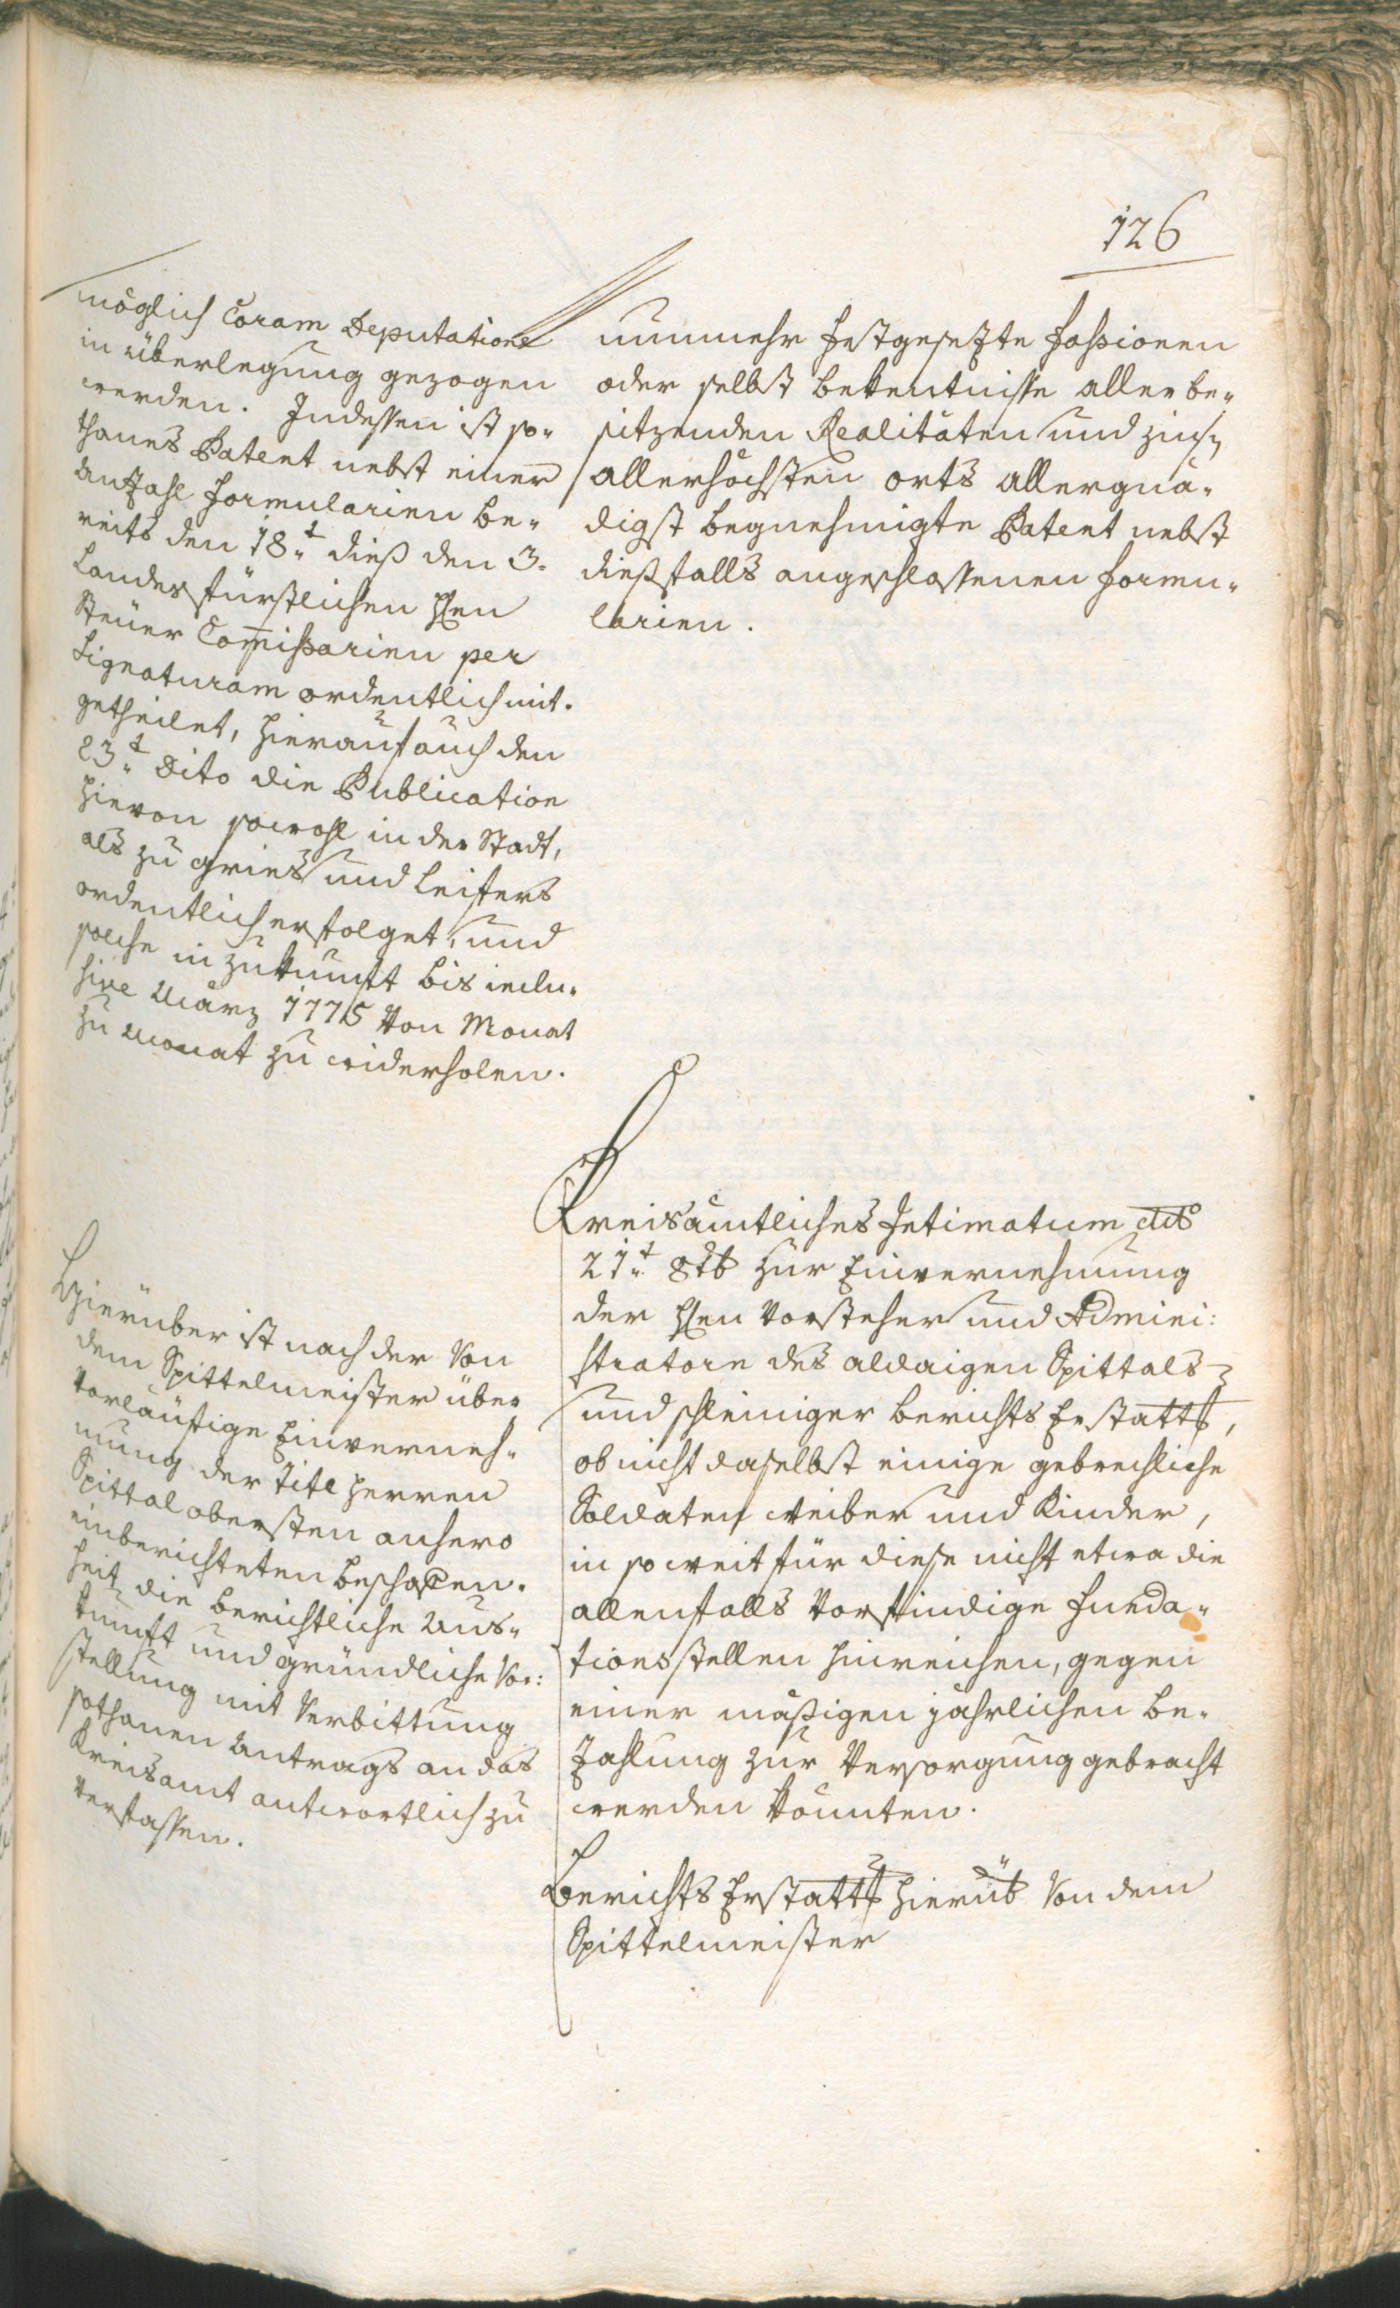 126
möglich Coram Deputatione
in überlegung gezogen
werden. Indessen ist so-
thanes Patent nebst einer
Anzahl Formularien be-
reits den 18.t dieß den 3.
Landesfürstlichen Hen
Steuer Comissarien per
Signaturam ordentlich mit-
getheilet, hierauf auch den
23.t dito die Publication
hievon sowohl in der Stadt,
als zu Gries und Leifers
ordentlich erfolget, und
solche in Zukunft bis inclu-
sive März 1775 von Monat
zu Monat zu widerholen.
nunmehr festgesezte Fassionen
oder selbst bekentnisse aller be-
sitzenden Realitäten und Zins
allerhöchsten orts allergnä-
digst begnehmigte Patent nebst
dießfalls angeschlossenen Formu-
larien.
Kreisämtliches Intimatum dto
21.t 8b zur Einvernehmung
der Hen Vorsteher und Admini:
stratorn des aldaigen Spittals
und schleiniger berichts Erstattg,
ob nicht daselbst einige gebrechliche
Soldaten weiber und Kinder,
in so weit für diese nicht etwa die
allenfalls vorfindige Funda-
tionsstellen hinreichen, gegen
einer mäßigen jährlichen be-
zahlung zur Versorgung gebracht
werden könnten.
Berichts Erstattg hierüb von dem
Spittelmeister
Hierüber ist nach der von
dem Spittelmeister über
vorläufige Einverneh-
mung der titl Herren
Spittal obersten anhero
einberichteten beschaffen-
heit die berichtliche Aus-
kunft und gründliche Vor:
stellung mit Verbittung
sothanen Antrags an das
Kreisamt antwortlich zu
verfassen.